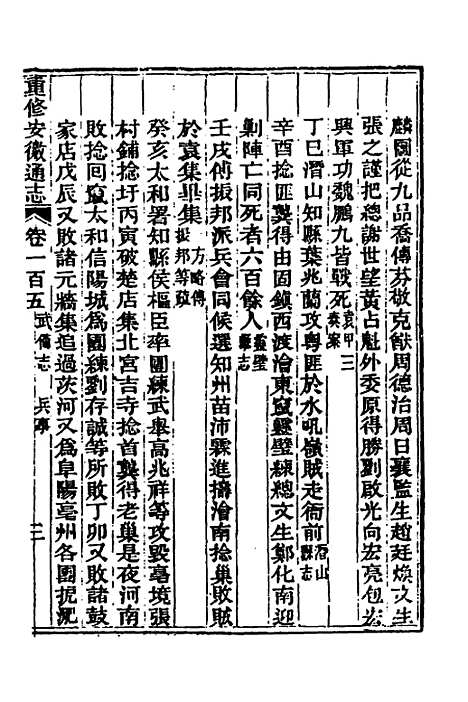 麟團從九品喬傳芬敬克猷周德治周日襄監生趙廷煥文生
張之謹把總謝世望黃占魁外委原得勝劉啟光向宏亮包宏
興軍功魏鵬九皆戰死袁甲三奏案
丁巳潛山知縣葉兆蘭攻粵匪於水吼嶺賊走衙前潛山縣志
辛酉捻匪龔得由固鎮西渡澮東竄靈璧練總文生鄭化南迎
剿陣亡同死者六百餘人靈璧縣志
壬戌傅振邦派兵會同候選知州苗沛霖進擣澮南捻巢敗賊
於袁集畢集方略傅振邦等疏
癸亥太和署知縣侯樞臣率團練武舉高兆祥等攻毀亳境張
村鋪捻圩丙寅破楚店集北宮吉寺捻首龔得老巢是夜河南
敗捻回竄太和信陽城為團練劉存誠等所敗丁卯又敗諸鼓
家店戊辰又敗諸元牆集追過茨河又為阜陽亳州各團扼
重修安徽通志 卷一百五 武備志 兵事 三